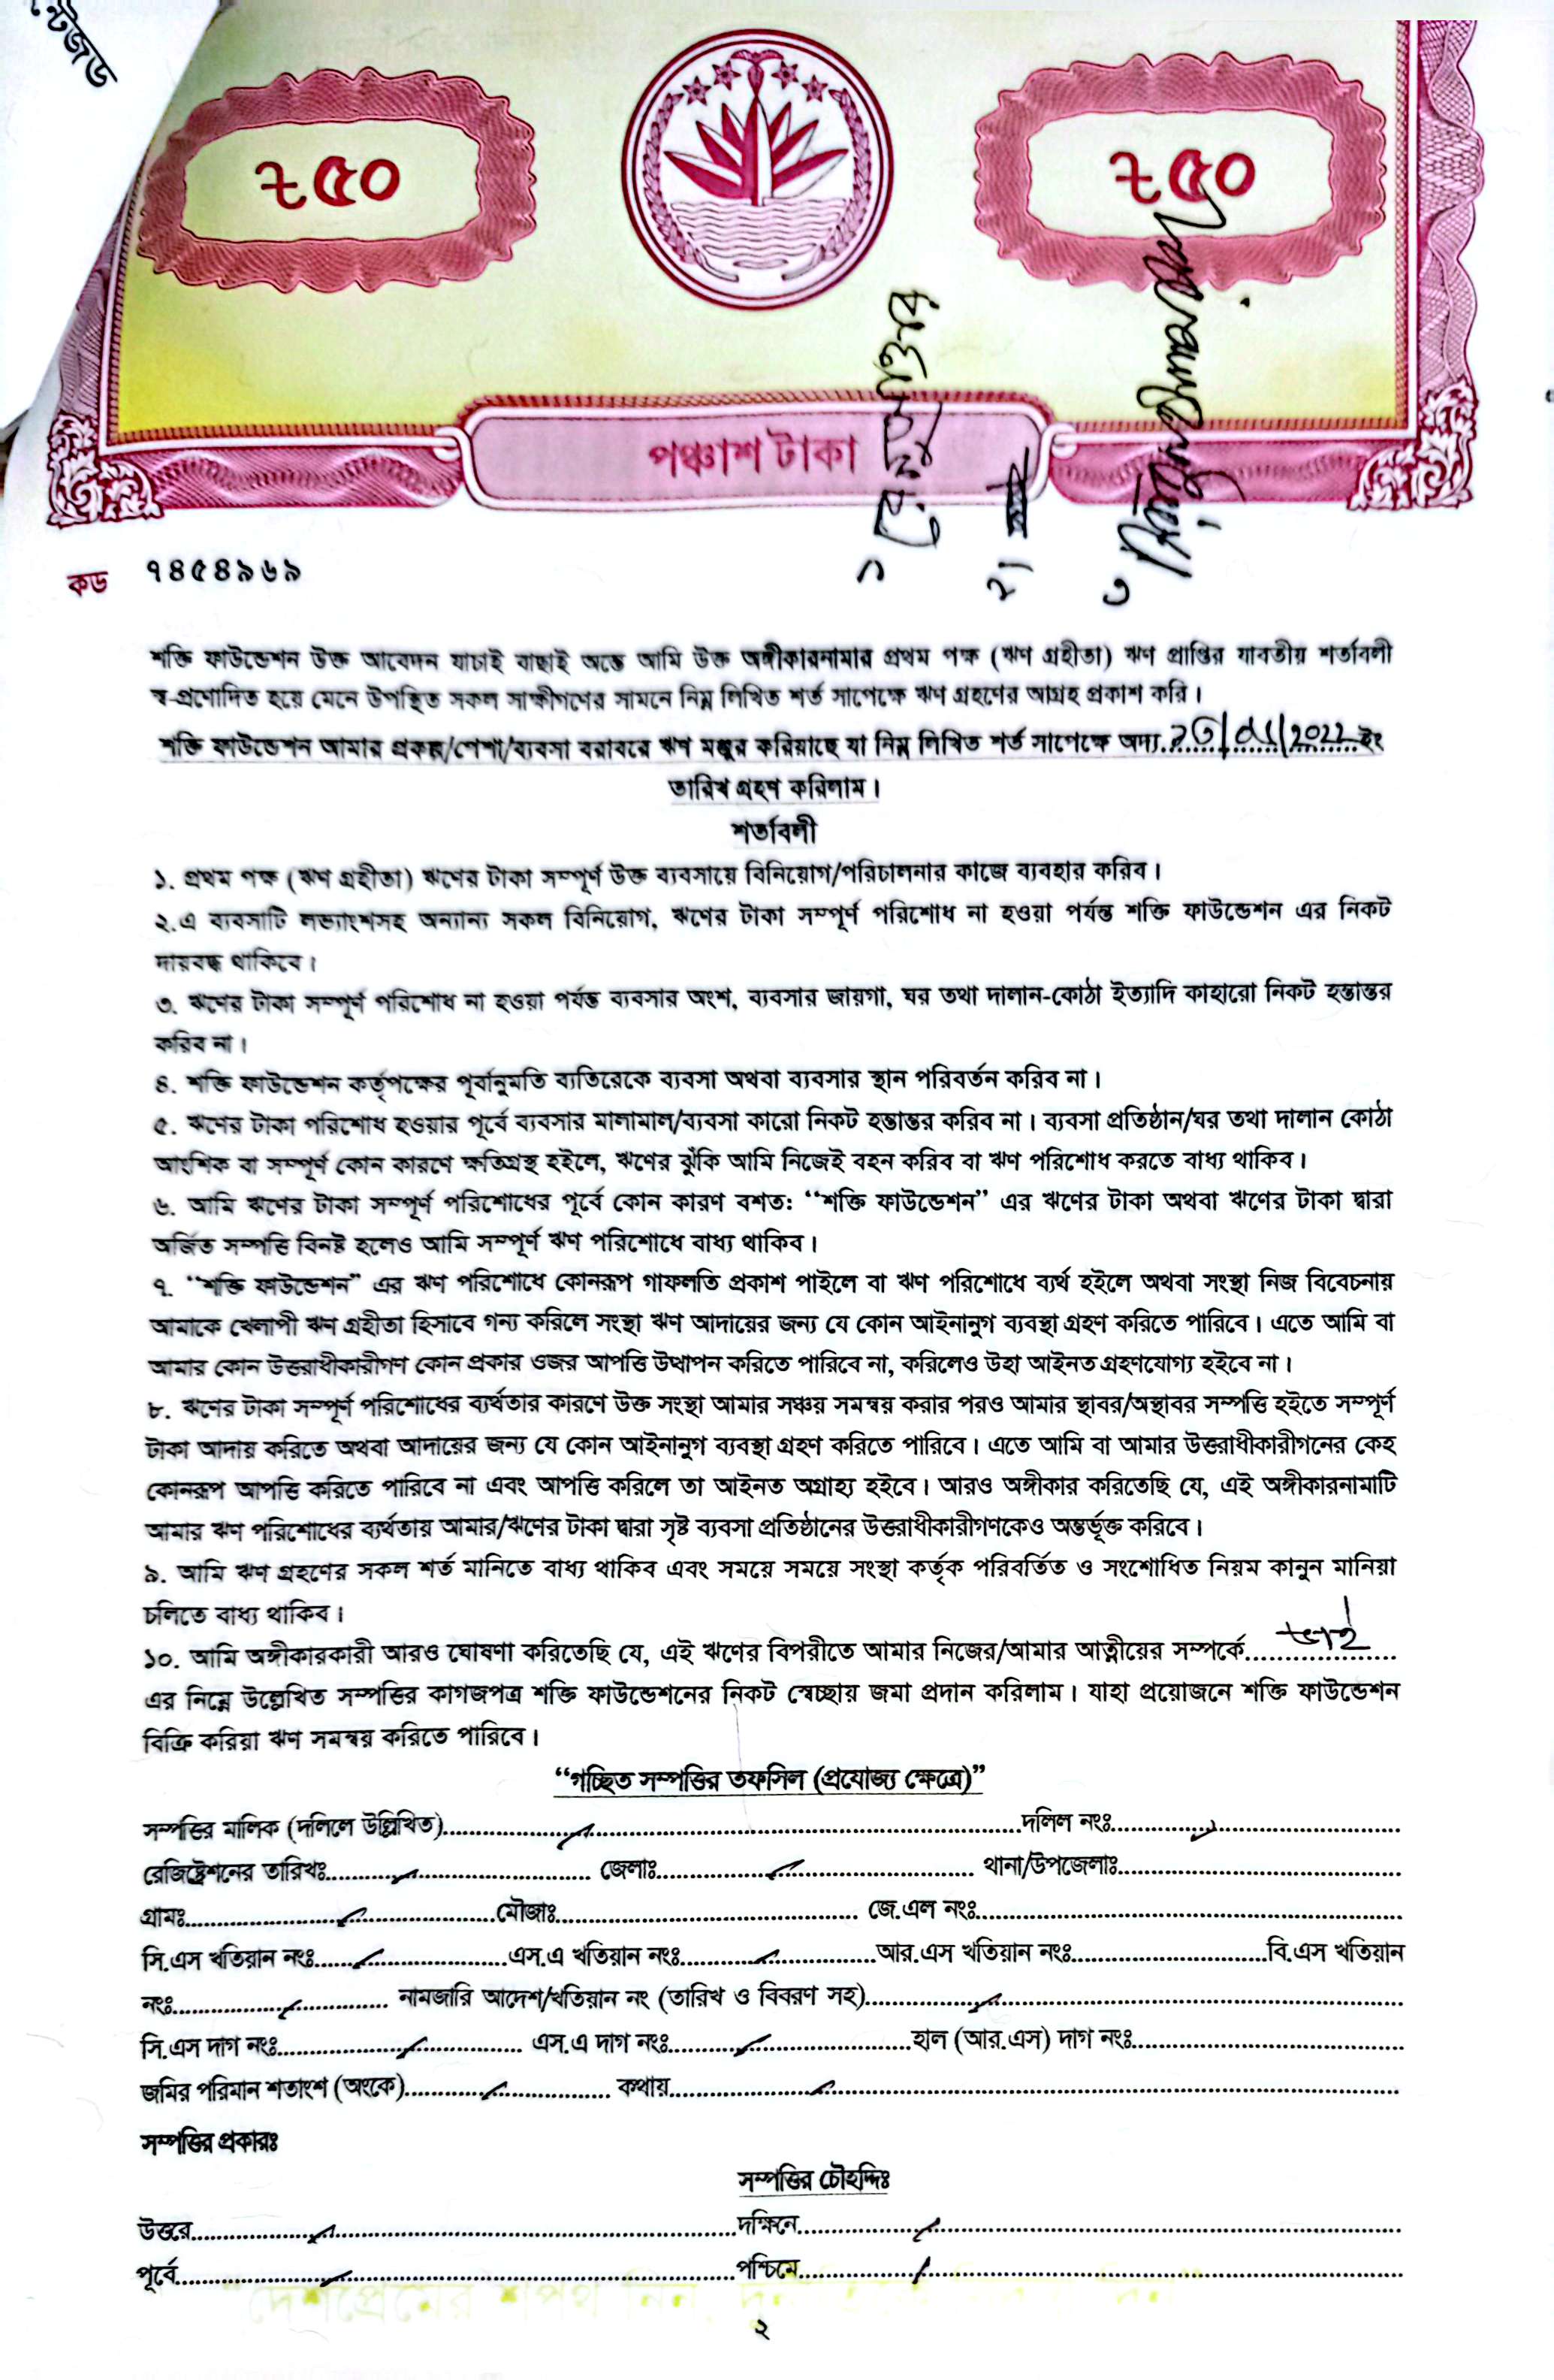 ন্টেজড
৳৫০
৳৫০
পঞ্চাশ টাকা
কড ৭৪৫৪৯৬৯
১
২।
৩
শক্তি ফাউন্ডেশন উক্ত আবেদন যাচাই বাছাই অন্তে আমি উক্ত অঙ্গীকারনামার প্রথম পক্ষ (ঋণ গ্রহীতা) ঋণ প্রাপ্তির যাবতীয় শর্তাবলী
স্ব-প্রণোদিত হয়ে মেনে উপস্থিত সকল সাক্ষীগণের সামনে নিম্ন লিখিত শর্ত সাপেক্ষে ঋণ গ্রহণের আগ্রহ প্রকাশ করি।
শক্তি ফাউন্ডেশন আমার প্রকল্প/পেশা/ব্যবসা বরাবরে ঋণ মঞ্জুর করিয়াছে যা নিম্ন লিখিত শর্ত সাপেক্ষে অদ্য.........ইং
তারিখ গ্রহণ করিলাম।
শর্তাবলী
১. প্রথম পক্ষ (ঋণ গ্রহীতা) ঋণের টাকা সম্পূর্ণ উক্ত ব্যবসায়ে বিনিয়োগ/পরিচালনার কাজে ব্যবহার করিব।
২.এ ব্যবসাটি লভ্যাংশসহ অন্যান্য সকল বিনিয়োগ, ঋণের টাকা সম্পূর্ণ পরিশোধ না হওয়া পর্যন্ত শক্তি ফাউন্ডেশন এর নিকট
দায়বদ্ধ থাকিবে।
৩. ঋণের টাকা সম্পূর্ণ পরিশোধ না হওয়া পর্যন্ত ব্যবসার অংশ, ব্যবসার জায়গা, ঘর তথা দালান-কোঠা ইত্যাদি কাহারো নিকট হস্তান্তর
করিব না।
৪. শক্তি ফাউন্ডেশন কর্তৃপক্ষের পূর্বানুমতি ব্যতিরেকে ব্যবসা অথবা ব্যবসার স্থান পরিবর্তন করিব না।
৫. ঋণের টাকা পরিশোধ হওয়ার পূর্বে ব্যবসার মালামাল/ব্যবসা কারো নিকট হস্তান্তর করিব না। ব্যবসা প্রতিষ্ঠান/ঘর তথা দালান কোঠা
আংশিক বা সম্পূর্ণ কোন কারণে ক্ষতিগ্রস্থ হইলে, ঋণের ঝুঁকি আমি নিজেই বহন করিব বা ঋণ পরিশোধ করতে বাধ্য থাকিব।
৬. আমি ঋণের টাকা সম্পূর্ণ পরিশোধের পূর্বে কোন কারণ বশত: “শক্তি ফাউন্ডেশন” এর ঋণের টাকা অথবা ঋণের টাকা দ্বারা
অর্জিত সম্পত্তি বিনষ্ট হলেও আমি সম্পূর্ণ ঋণ পরিশোধে বাধ্য থাকিব।
৭. “শক্তি ফাউন্ডেশন” এর ঋণ পরিশোধে কোনরূপ গাফলতি প্রকাশ পাইলে বা ঋণ পরিশোধে ব্যর্থ হইলে অথবা সংস্থা নিজ বিবেচনায়
আমাকে খেলাপী ঋণ গ্রহীতা হিসাবে গন্য করিলে সংস্থা ঋণ আদায়ের জন্য যে কোন আইনানুগ ব্যবস্থা গ্রহণ করিতে পারিবে। এতে আমি বা
আমার কোন উত্তরাধীকারীগণ কোন প্রকার ওজর আপত্তি উত্থাপন করিতে পারিবে না, করিলেও উহা আইনত গ্রহণযোগ্য হইবে না।
৮. ঋণের টাকা সম্পূর্ণ পরিশোধের ব্যর্থতার কারণে উক্ত সংস্থা আমার সঞ্চয় সমন্বয় করার পরও আমার স্থাবর/অস্থাবর সম্পত্তি হইতে সম্পূর্ণ
টাকা আদায় করিতে অথবা আদায়ের জন্য যে কোন আইনানুগ ব্যবস্থা গ্রহণ করিতে পারিবে। এতে আমি বা আমার উত্তরাধীকারীগনের কেহ
কোনরূপ আপত্তি করিতে পারিবে না এবং আপত্তি করিলে তা আইনত অগ্রাহ্য হইবে। আরও অঙ্গীকার করিতেছি যে, এই অঙ্গীকারনামাটি
আমার ঋণ পরিশোধের ব্যর্থতায় আমার/ঋণের টাকা দ্বারা সৃষ্ট ব্যবসা প্রতিষ্ঠানের উত্তরাধীকারীগণকেও অন্তর্ভূক্ত করিবে।
৯. আমি ঋণ গ্রহণের সকল শর্ত মানিতে বাধ্য থাকিব এবং সময়ে সময়ে সংস্থা কর্তৃক পরিবর্তিত ও সংশোধিত নিয়ম কানুন মানিয়া
চলিতে বাধ্য থাকিব।
১০. আমি অঙ্গীকারকারী আরও ঘোষণা করিতেছি যে, এই ঋণের বিপরীতে আমার নিজের/আমার আত্নীয়ের সম্পর্কে.........
এর নিম্নে উল্লেখিত সম্পত্তির কাগজপত্র শক্তি ফাউন্ডেশনের নিকট স্বেচ্ছায় জমা প্রদান করিলাম। যাহা প্রয়োজনে শক্তি ফাউন্ডেশন
বিক্রি করিয়া ঋণ সমন্বয় করিতে পারিবে।
“গচ্ছিত সম্পত্তির তফসিল (প্রযোজ্য ক্ষেত্রে)”
সম্পত্তির মালিক (দলিলে উল্লিখিত).........দলিল নংঃ.........
রেজিষ্ট্রেশনের তারিখঃ......... জেলাঃ......... থানা/উপজেলাঃ.........
গ্রামঃ.........মৌজাঃ......... জে.এল নংঃ.........
সি.এস খতিয়ান নংঃ.........এস.এ খতিয়ান নংঃ.........আর.এস খতিয়ান নংঃ.........বি.এস খতিয়ান
নংঃ......... নামজারি আদেশ/খতিয়ান নং (তারিখ ও বিবরণ সহ).........
সি.এস দাগ নংঃ......... এস.এ দাগ নংঃ.........হাল (আর.এস) দাগ নংঃ.........
জমির পরিমান শতাংশ (অংকে)......... কথায়.........
সম্পত্তির প্রকারঃ
সম্পত্তির চৌহদ্দিঃ
উত্তরে.........দক্ষিনে.........
পূর্বে.........পশ্চিমে.........
২